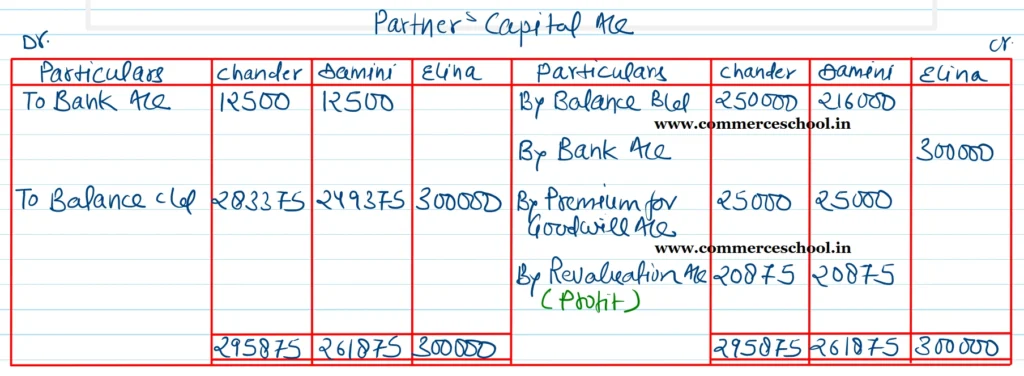 Partner's Capital A/c
Dr. Cr.
Particulars Chander Damini Elina Particulars Chander Damini Elina
To Bank A/c 12500 12500 By Balance B/d 250000 216000
www.commerceschool.in
By Bank A/c 300000
To Balance c/d 283375 249375 300000 By Premium for 25000 25000
Goodwill A/c
www.commerceschool.in
By Revaluation A/c 20875 20875
(Profit)
295875 261875 300000 295875 261875 300000